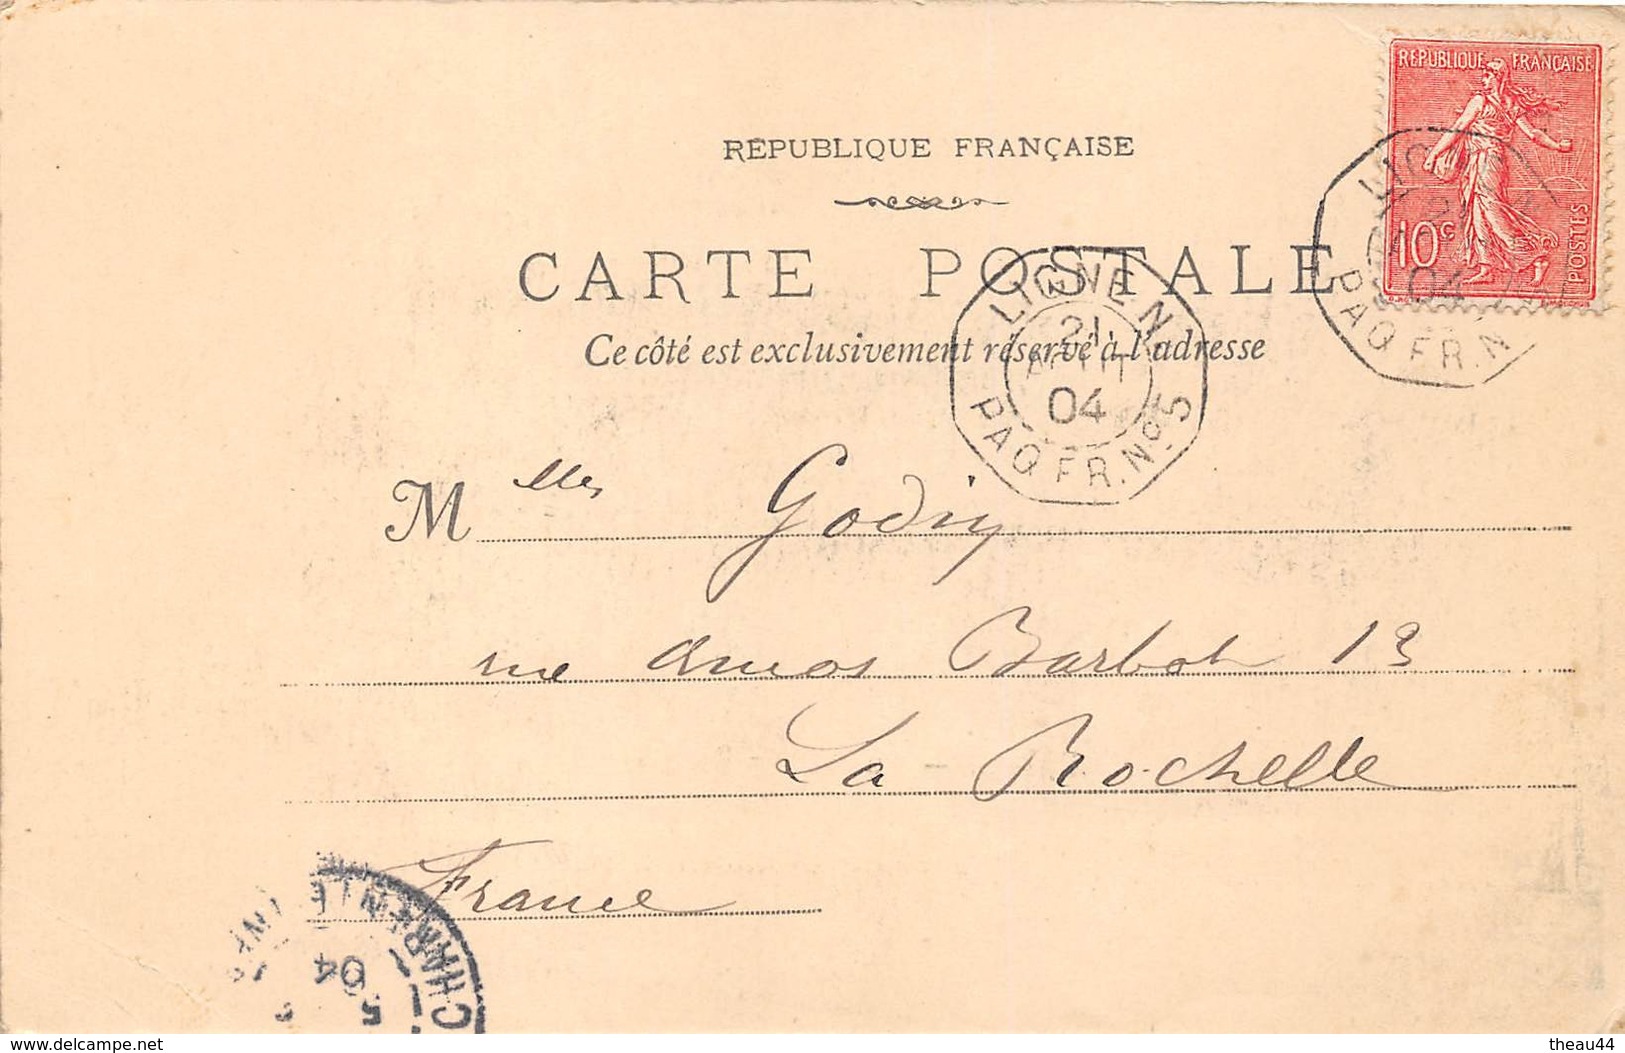 REPUBLIQUE FRANÇAISE
10c
POSTES
REPUBLIQUE FRANÇAISE
CARTE POSTALE
Ce côté est exclusivement réservé à l'adresse
LIGNE N
21
AOUT
04
PAQ. FR. No 5
04
PAQ. FR. N
Mlles Godry
rue Amos Barbot 13
La Rochelle
France
CHARENTE INF
04
5
www.delcampe.net
theau44